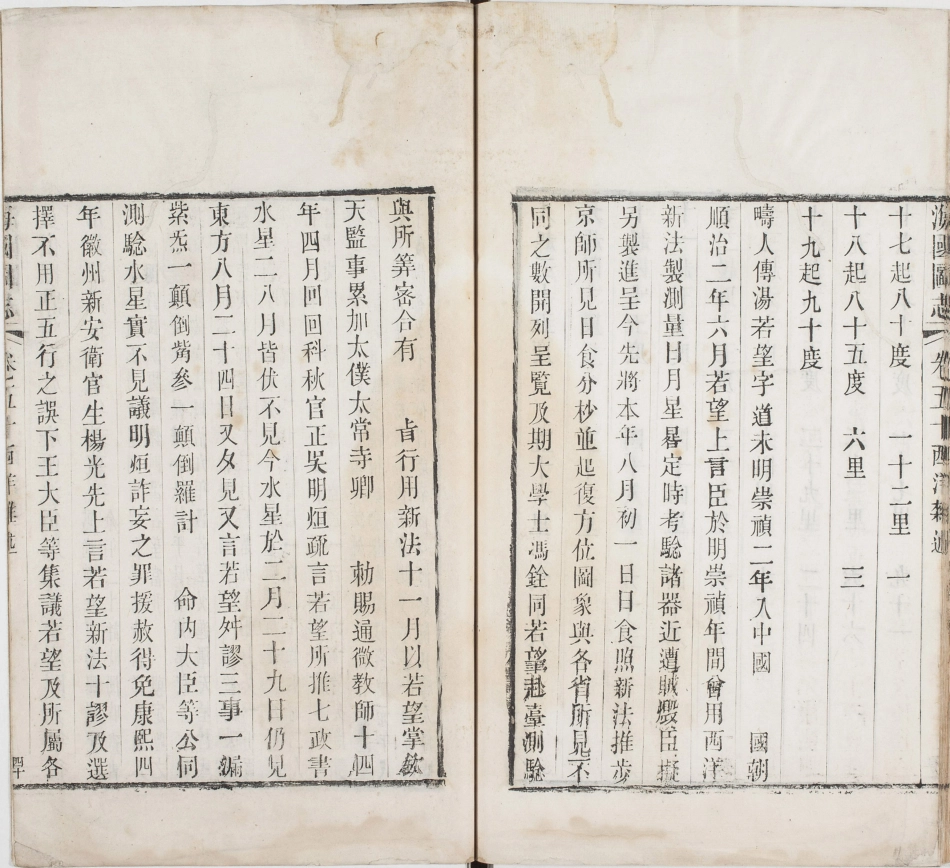 海國圖志 卷五十 西洋雜述
十七起八十度 一十二里 一
十八起八十五度 六里 三
十九起九十度
疇人傳湯若望字道未明崇禎二年入中國 國朝
順治二年六月若望上言臣於明崇禎年間曾用西洋
新法製測量日月星晷定時考驗諸器近遭賊燬臣擬
另製進呈今先將本年八月初一日日食照新法推步
京師所見日食分秒並起復方位圖象與各省所見不
同之數開列呈覽及期大學士馮銓同若望赴臺測驗
與所筭密合有 旨行用新法十一月以若望掌欽
天監事累加太僕太常寺卿 勅賜通微教師十四
年四月回回科秋官正吳明烜疏言若望所推七政書
水星二八月皆伏不見今水星於二月二十九日仍見
東方八月二十四日又夕見又言若望舛謬三事一漏
紫炁一顛倒觜參一顛倒羅計 命內大臣等公同
測驗水星實不見議明烜詐妄之罪援赦得免康熙四
年徽州新安衛官生楊光先上言若望新法十謬及選
擇不用正五行之誤下王大臣等集議若望及所屬各
海國圖志 卷 五十 西洋雜述一